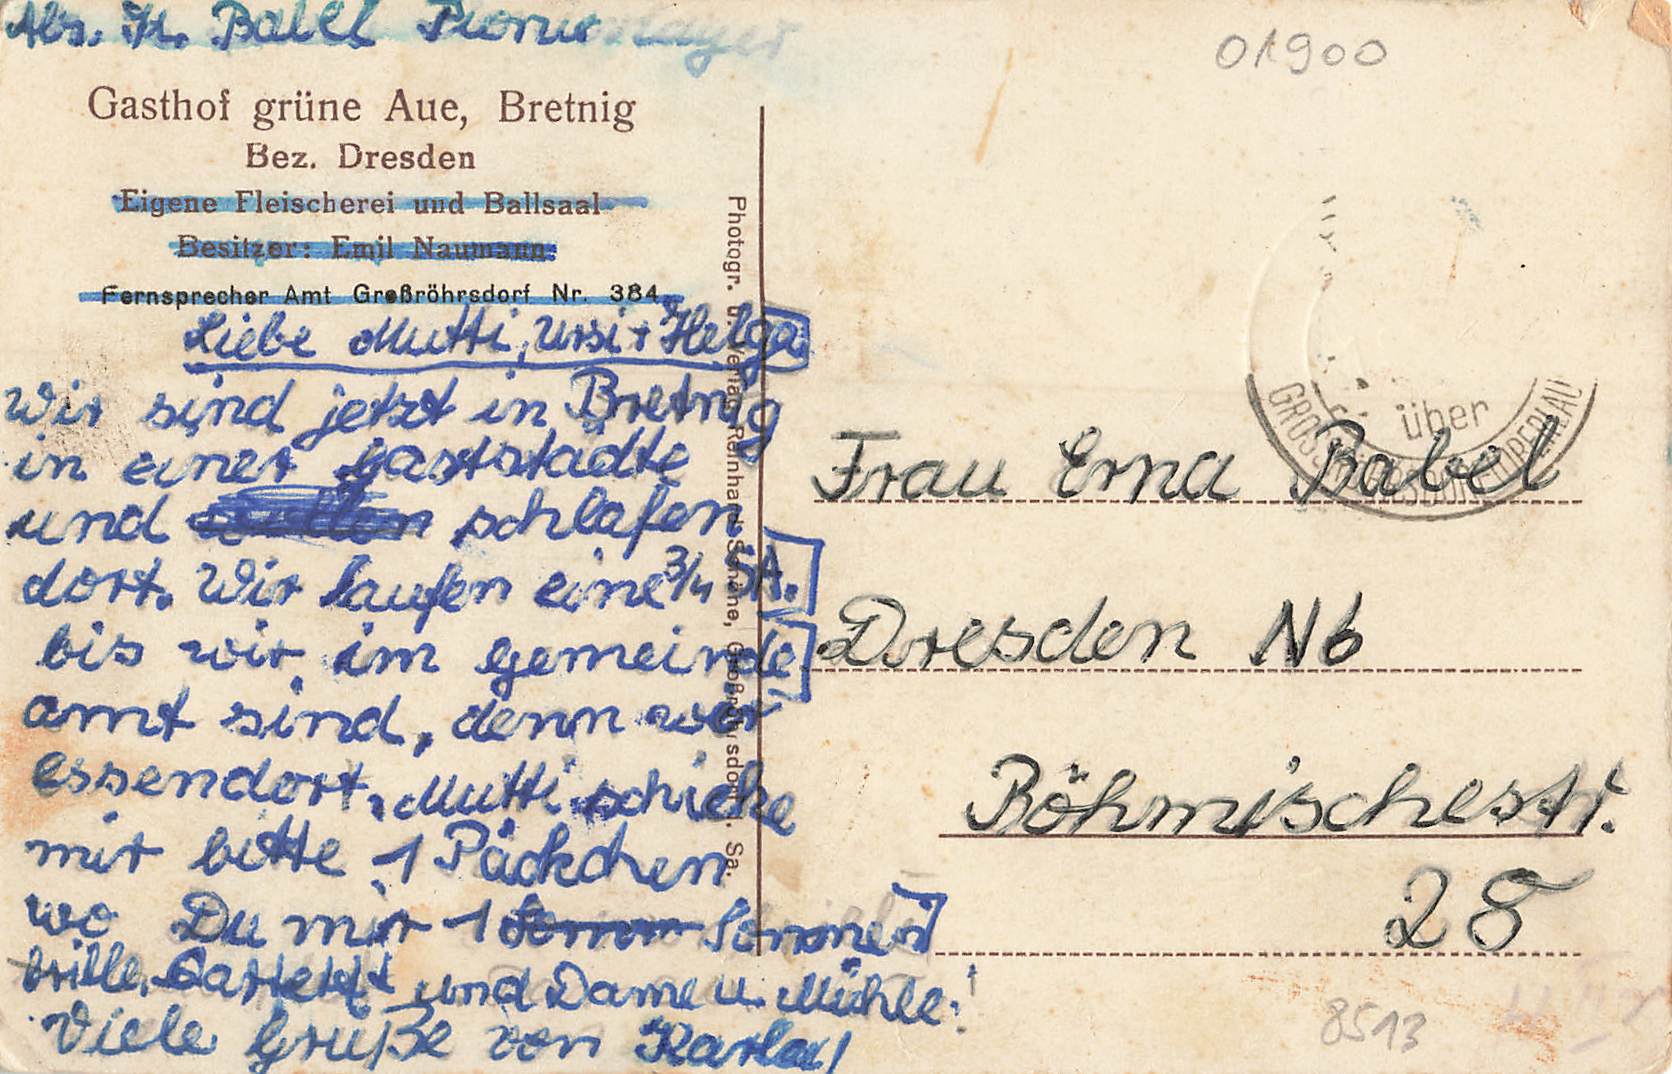 Abs. K. Babel Pionier lager
01900
Gasthof grüne Aue, Bretnig
Bez. Dresden
Eigene Fleischerei und Ballsaal
Besitzer: Emil Naumann.
Fernsprecher Amt Großröhrsdorf Nr. 384
Liebe Mutti, Ursi + Helga
Wir sind jetzt in Bretnig
in einer gaststadte
und schlafen
dort. Wir laufen eine 3/4 St.
bis wir im gemeinde
amt sind, denn wir
essendort. Mutti schicke
mir bitte 1 Päckchen
wo Du mir 1 Sonnen
brille, und Dame u. Mühle!
Viele Grüße von Karla!
Photogr. u. Verlag Reinhard Schöne, Großröhrsdorf i. Sa.
über
Frau Erna Babel
Dresden N6
Böhmischestr.
28
8513